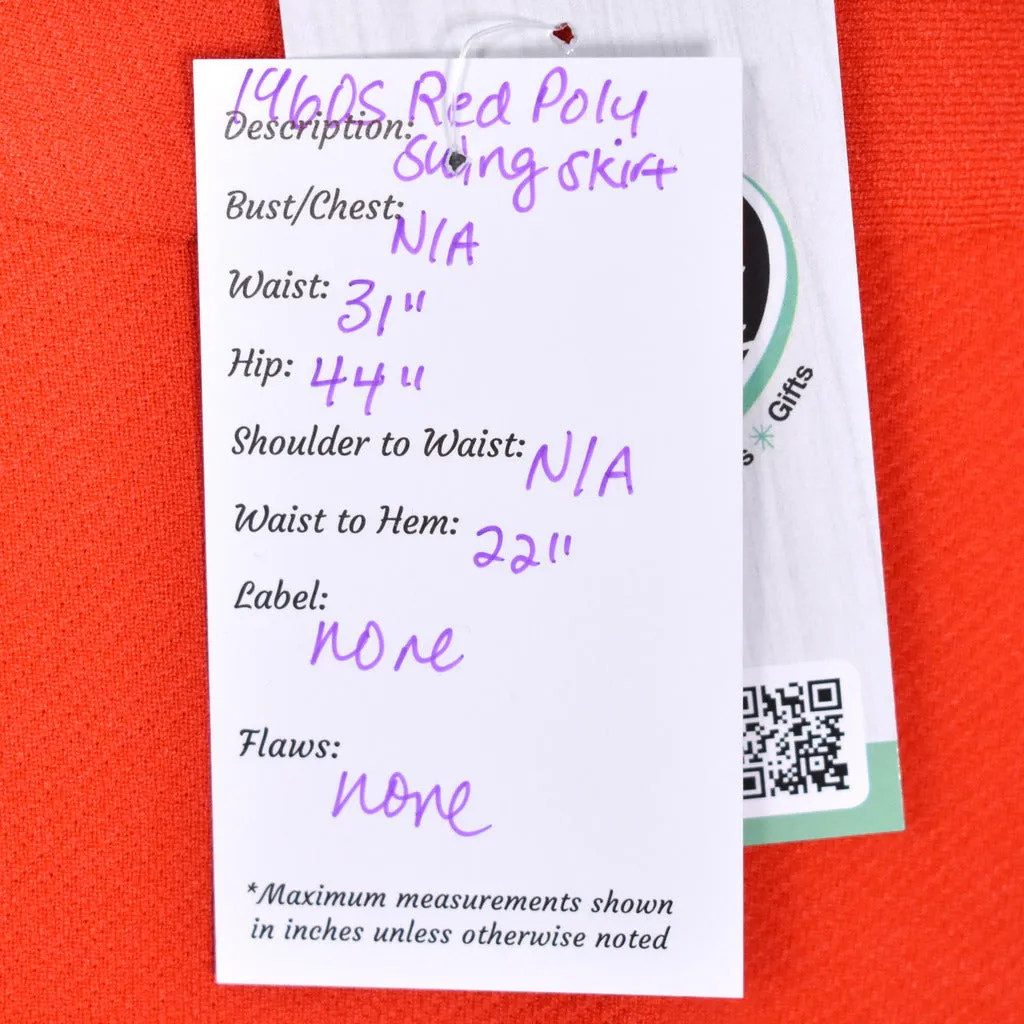 1960s Red Poly
Description:
Swing skirt
Bust/Chest:
N/A
Waist: 31"
Hip: 44"
Shoulder to Waist: N/A
Waist to Hem: 22"
Label:
none
Flaws:
none
*Maximum measurements shown
in inches unless otherwise noted
Gifts